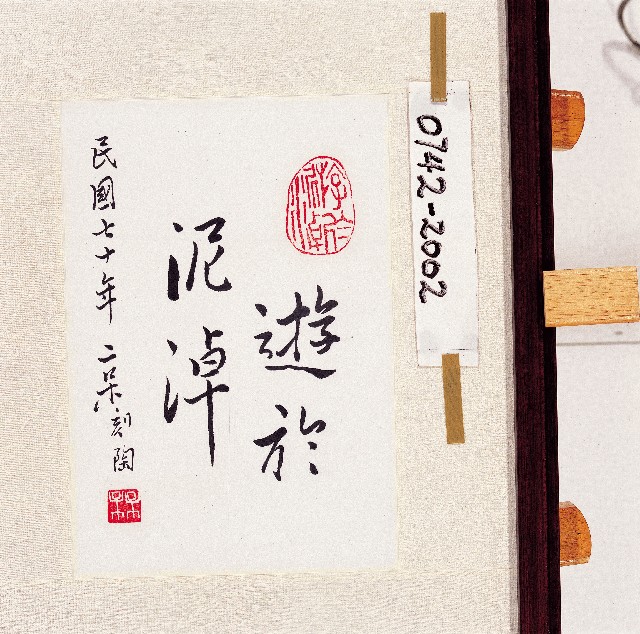 遊於
泥淖
民國七十年 二呆刻陶
0742-2002